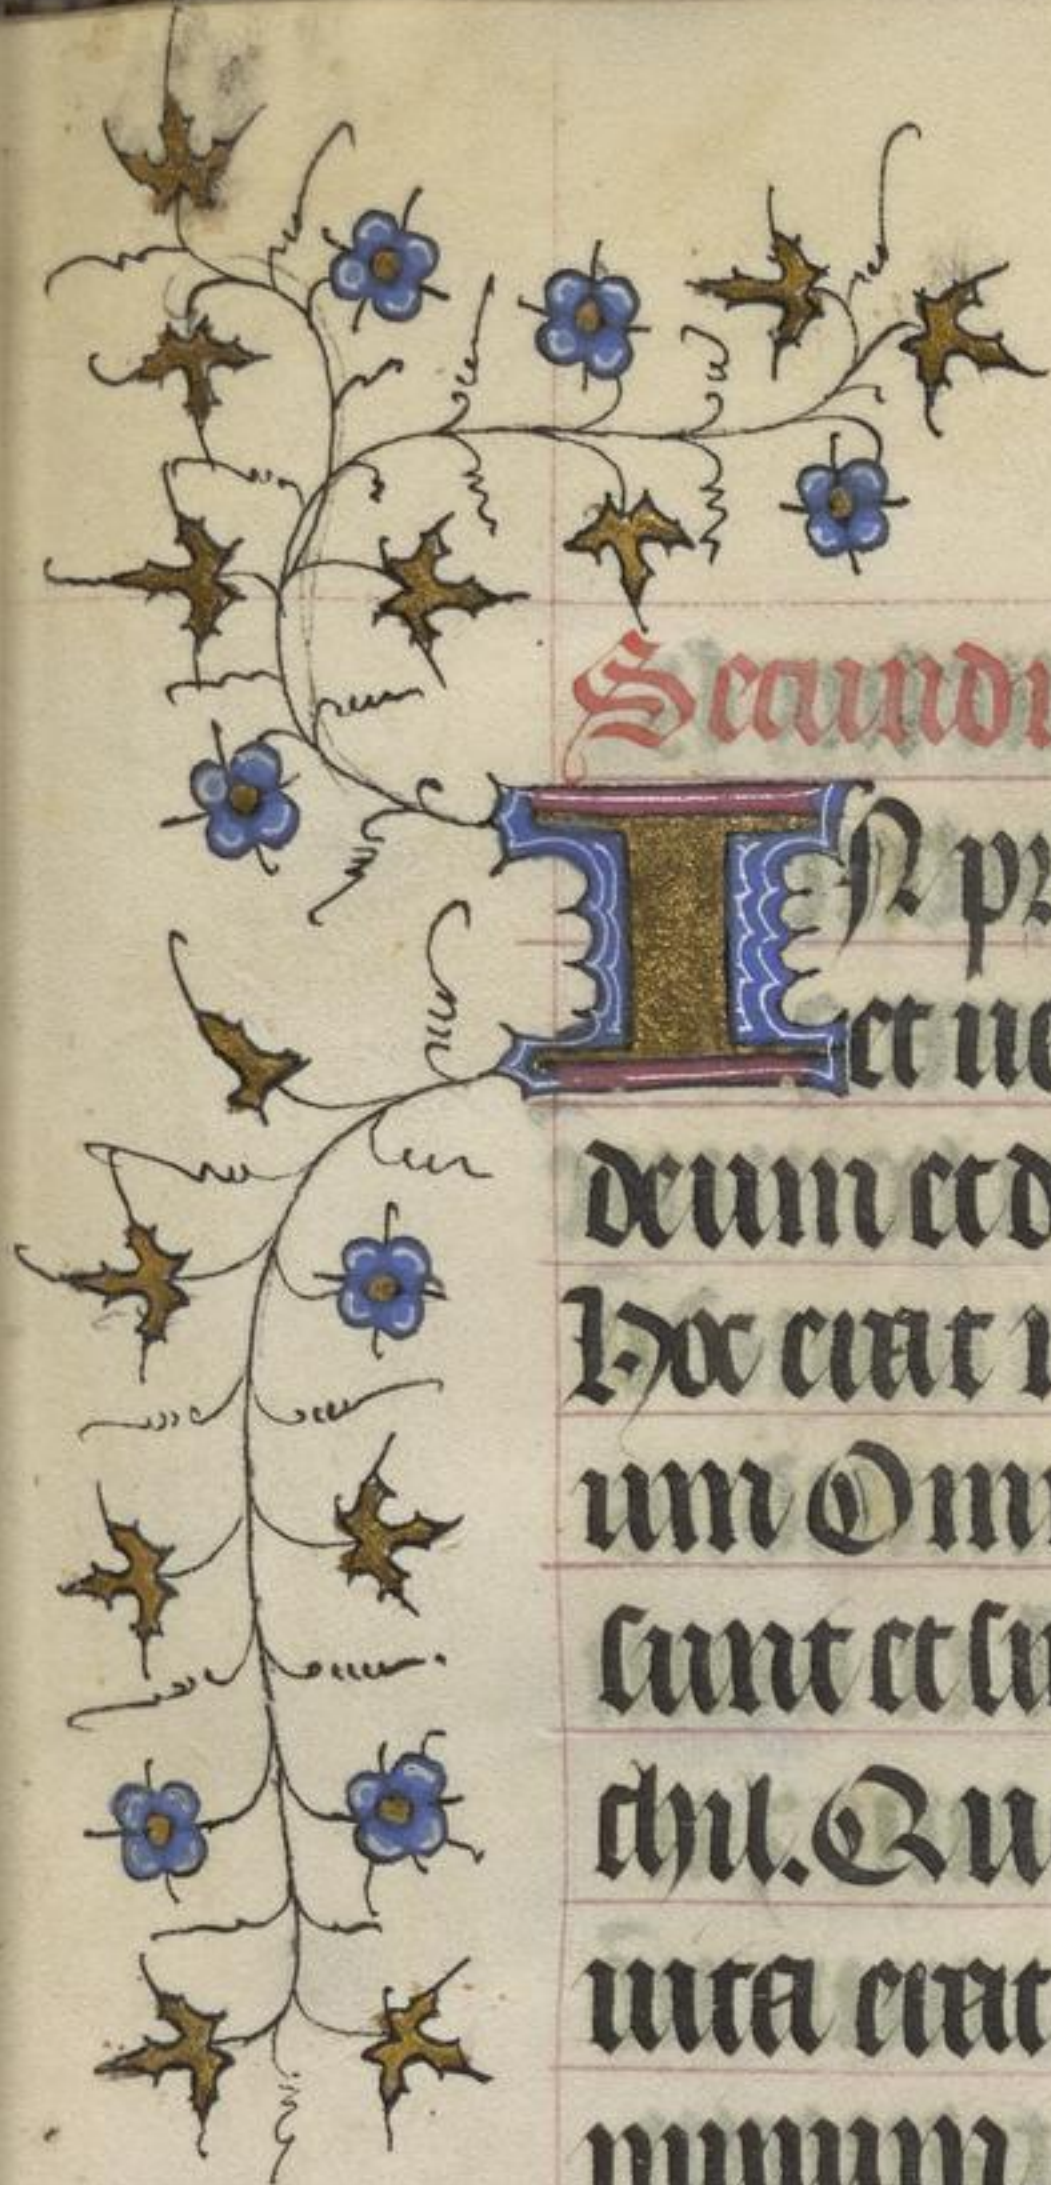 Secundu
IN pr
et ue
deum et d
Hoc erat i
um Omn
sunt et si
chil. Qu
uita erat
minum